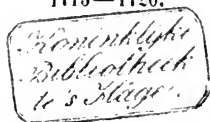 1715—1720.
Koninklijke
Bibliotheek
te 's Hage.